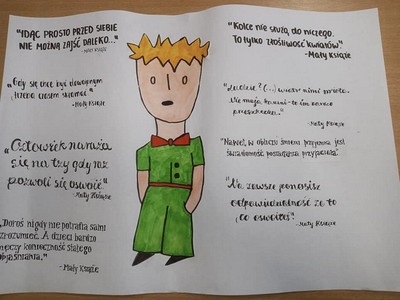 "IDĄC PROSTO PRZED SIEBIE
NIE MOŻNA ZAJŚĆ DALEKO..."
-MAŁY KSIĄŻE
"Gdy się chce być dowcipnym
trzeba czasem skłamać"
-Mały Książe
"Człowiek naraża
się na łzy gdy raz
pozwoli się oswoić"
-Mały Książe
"Dorośli nigdy nie potrafią sami
zrozumieć. A dzieci bardzo
męczy konieczność stałego
objaśniania."
-Mały Książe
"Kolce nie służą do niczego.
To tylko złośliwość kwiatów"
-Mały Książe
"Ludzie? (...) wiatr nimi miota.
Nie mają korzeni - to im bardzo
przeszkadza."
-Mały Książe
"Nawet w obliczu śmierci przyjemna jest
świadomość posiadania przyjaciela"
"Na zawsze ponosisz
odpowiedzialność za to
co oswoiłeś"
-Mały Książe